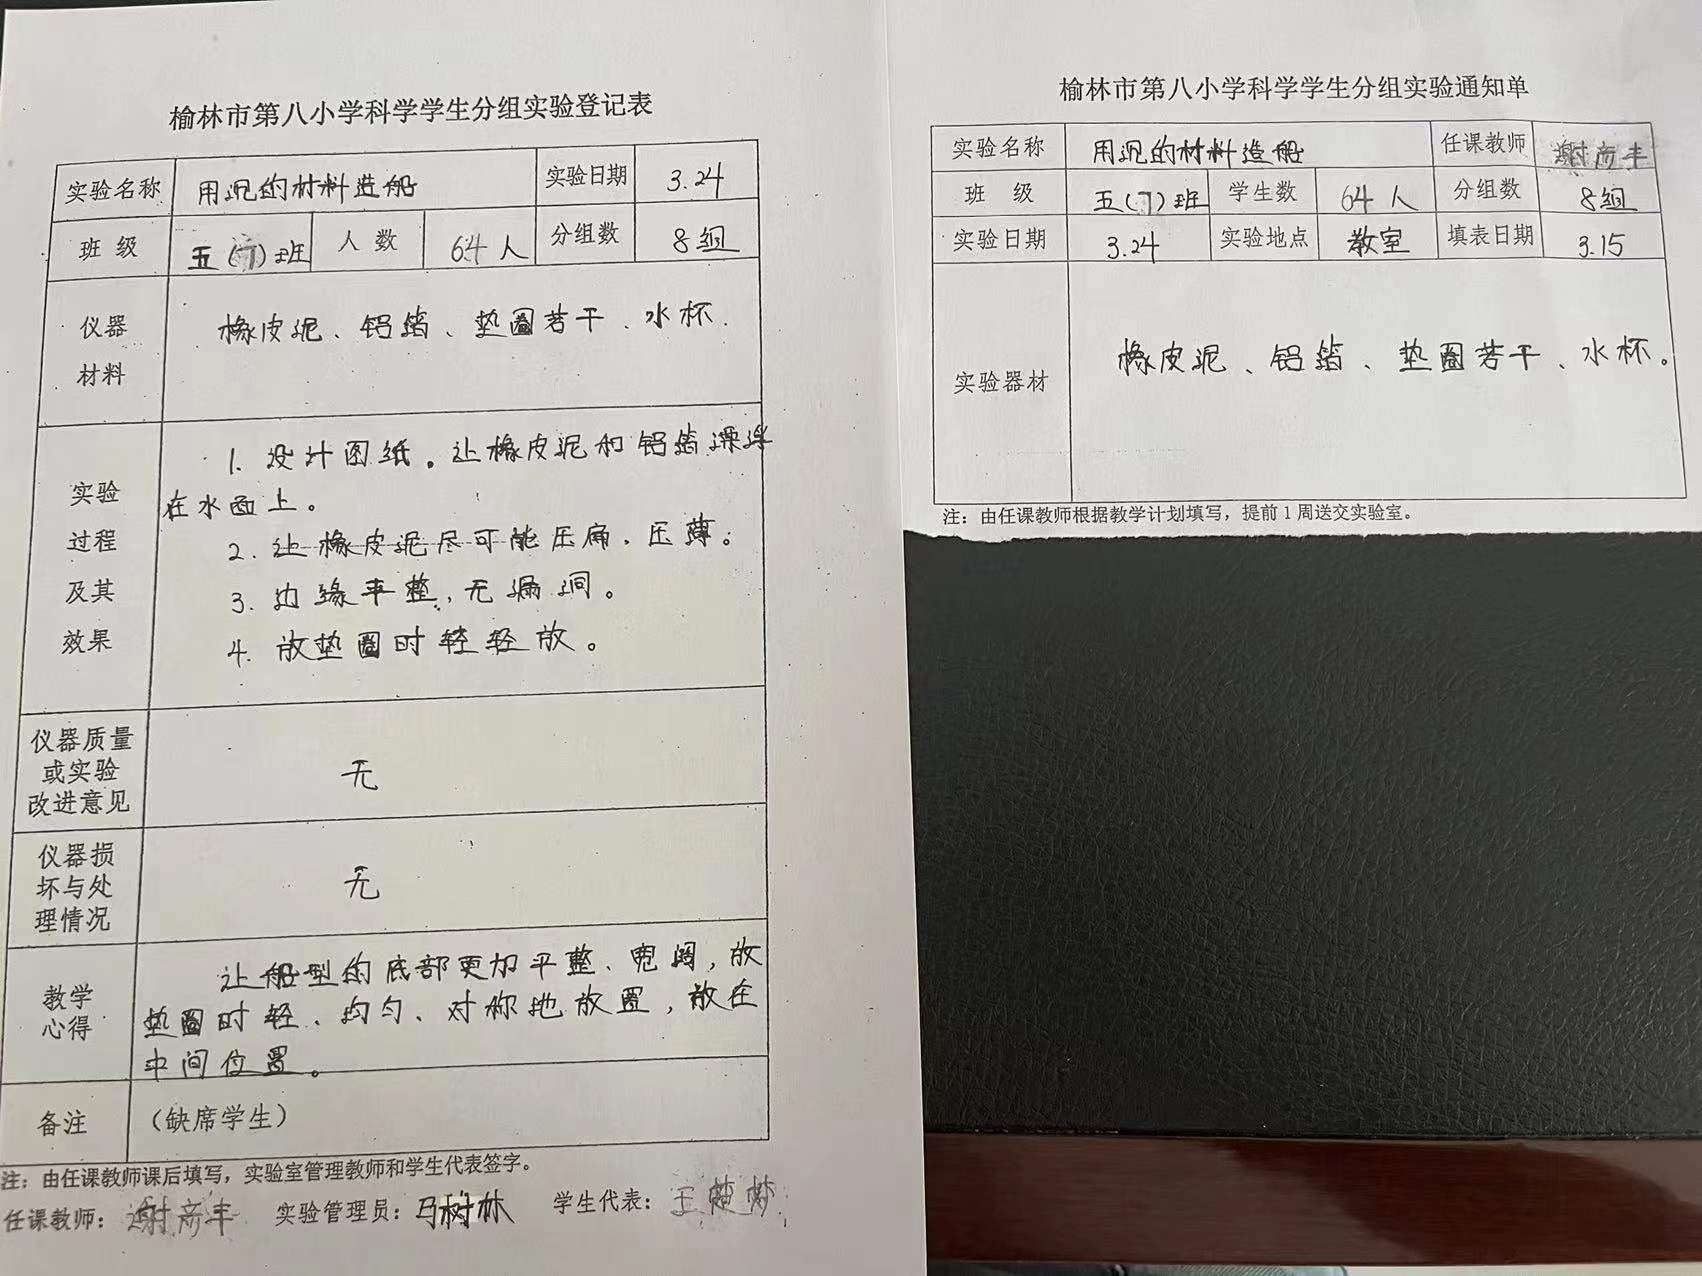 榆林市第八小学科学学生分组实验登记表
实验名称 用沉的材料造船 实验日期 3.24
班 级 五(7)班 人 数 64人 分组数 8组
仪器
材料
橡皮泥、铝箔、垫圈若干、水杯.
实验
过程
及其
效果
1. 设计图纸。让橡皮泥和铝箔漂浮
在水面上。
2. 让橡皮泥尽可能压扁、压薄。
3. 边缘平整,无漏洞。
4. 放垫圈时轻轻放。
仪器质量
或实验
改进意见
无
仪器损
坏与处
理情况
无
教学
心得
让船型的底部更加平整、宽阔,放
垫圈时轻、均匀、对称地放置,放在
中间位置。
备注 (缺席学生)
注:由任课教师课后填写,实验室管理教师和学生代表签字。
任课教师:谢彦丰 实验管理员:马树林 学生代表:王楚梦
榆林市第八小学科学学生分组实验通知单
实验名称 用沉的材料造船 任课教师 谢彦丰
班 级 五(7)班 学生数 64人 分组数 8组
实验日期 3.24 实验地点 教室 填表日期 3.15
实验器材 橡皮泥、铝箔、垫圈若干、水杯。
注:由任课教师根据教学计划填写,提前1周送交实验室。